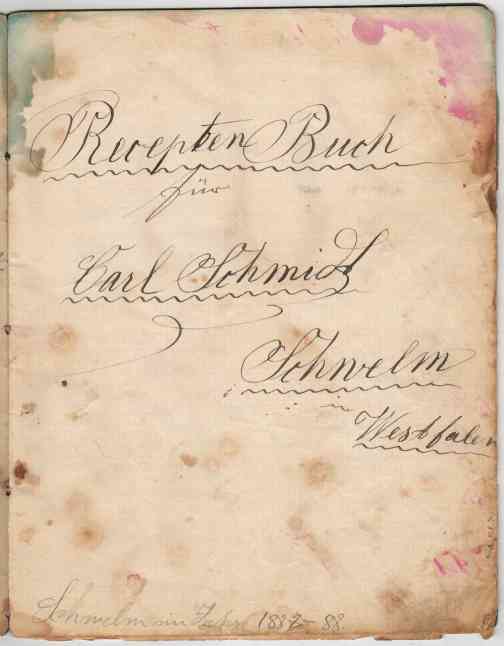 Recepten Buch
für
Carl Schmidt
Schwelm
in
Westfalen
Schwelm im Jahr 1887-88